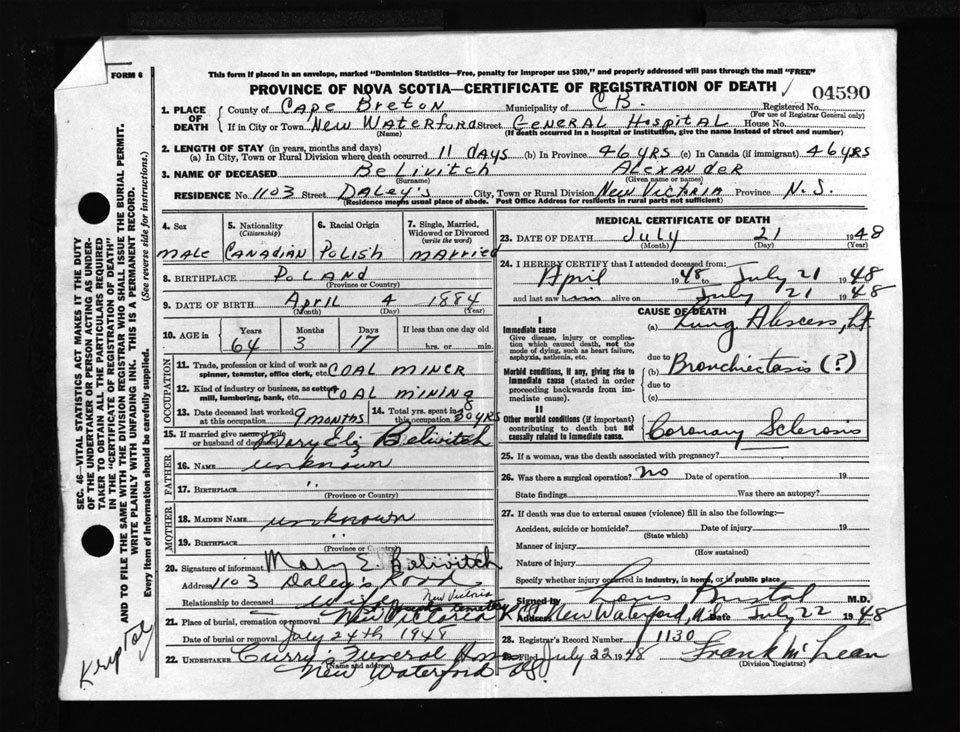 FORM 6
This form if placed in an envelope, marked "Dominion Statistics—Free, penalty for improper use $300," and properly addressed will pass through the mail "FREE"
PROVINCE OF NOVA SCOTIA—CERTIFICATE OF REGISTRATION OF DEATH
04590
1. PLACE OF DEATH County of Cape Breton Municipality of C B. Registered No.
(For use of Registrar General only)
If in City or Town New Waterford Street General Hospital House No.
(Name) (If death occurred in a hospital or institution, give the name instead of street and number)
2. LENGTH OF STAY (in years, months and days)
(a) In City, Town or Rural Division where death occurred 11 days (b) In Province 46 yrs (c) In Canada (if immigrant) 46 yrs
3. NAME OF DECEASED Belivitch Alexander
(Surname) (Given name or names)
RESIDENCE No. 1103 Street Daley's City, Town or Rural Division New Victoria Province N.S.
(Residence means usual place of abode. Post Office Address for residents in rural parts not sufficient)
4. Sex 5. Nationality (Citizenship) 6. Racial Origin 7. Single, Married, Widowed or Divorced (write the word)
male Canadian Polish married
8. BIRTHPLACE Poland
(Province or Country)
9. DATE OF BIRTH April 4 1884
(Month) (Day) (Year)
10. AGE in Years Months Days If less than one day old
64 3 17 hrs. or min.
OCCUPATION
11. Trade, profession or kind of work as spinner, teamster, office clerk, etc. Coal miner
12. Kind of industry or business, as cotton mill, lumbering, bank, etc. Coal mining
13. Date deceased last worked at this occupation 9 months 14. Total yrs. spent in this occupation yrs
15. If married give name of wife or husband of deceased Belivitch
FATHER
16. NAME unknown
17. BIRTHPLACE "
(Province or Country)
MOTHER
18. MAIDEN NAME unknown
19. BIRTHPLACE "
(Province or Country)
20. Signature of informant Mary E. Belivitch
Address 1103 Daley's Road
New Victoria
Relationship to deceased wife
21. Place of burial, cremation or removal New Victoria cemetery
Date of burial or removal July 24th 1948
22. UNDERTAKER Curry's Funeral Home
(Name and address)
New Waterford
MEDICAL CERTIFICATE OF DEATH
23. DATE OF DEATH July 21 1948
(Month) (Day) (Year)
24. I HEREBY CERTIFY that I attended deceased from:
April 1948 to July 21 1948
and last saw him alive on July 21 1948
CAUSE OF DEATH
I
Immediate cause
Give disease, injury or complication which caused death, not the mode of dying, such as heart failure, asphyxia, asthenia, etc.
(a) Lung Abscess, Lt
due to
Morbid conditions, if any, giving rise to immediate cause (stated in order proceeding backwards from immediate cause).
(b) Bronchiectasis (?)
due to
(c)
II
Other morbid conditions (if important) contributing to death but not causally related to immediate cause.
Coronary Sclerosis
25. If a woman, was the death associated with pregnancy?
26. Was there a surgical operation? no Date of operation 19
State findings Was there an autopsy?
27. If death was due to external causes (violence) fill in also the following:—
Accident, suicide or homicide? Date of injury 19
(State which)
Manner of injury
(How sustained)
Nature of injury
Specify whether injury occurred in industry, in home, or in public place
Signed by M.D.
Address New Waterford, Date July 22 1948
28. Registrar's Record Number 1130
29. Filed July 22 1948 Frank McLean
(Division Registrar)
SEC. 46—VITAL STATISTICS ACT MAKES IT THE DUTY
OF THE UNDERTAKER OR PERSON ACTING AS UNDERTAKER
TO OBTAIN ALL THE PARTICULARS REQUIRED
IN THE "CERTIFICATE OF REGISTRATION OF DEATH"
AND TO FILE THE SAME WITH THE DIVISION REGISTRAR WHO SHALL ISSUE THE BURIAL PERMIT.
WRITE PLAINLY WITH UNFADING INK. THIS IS A PERMANENT RECORD.
Every item of information should be carefully supplied. (See reverse side for instructions.)